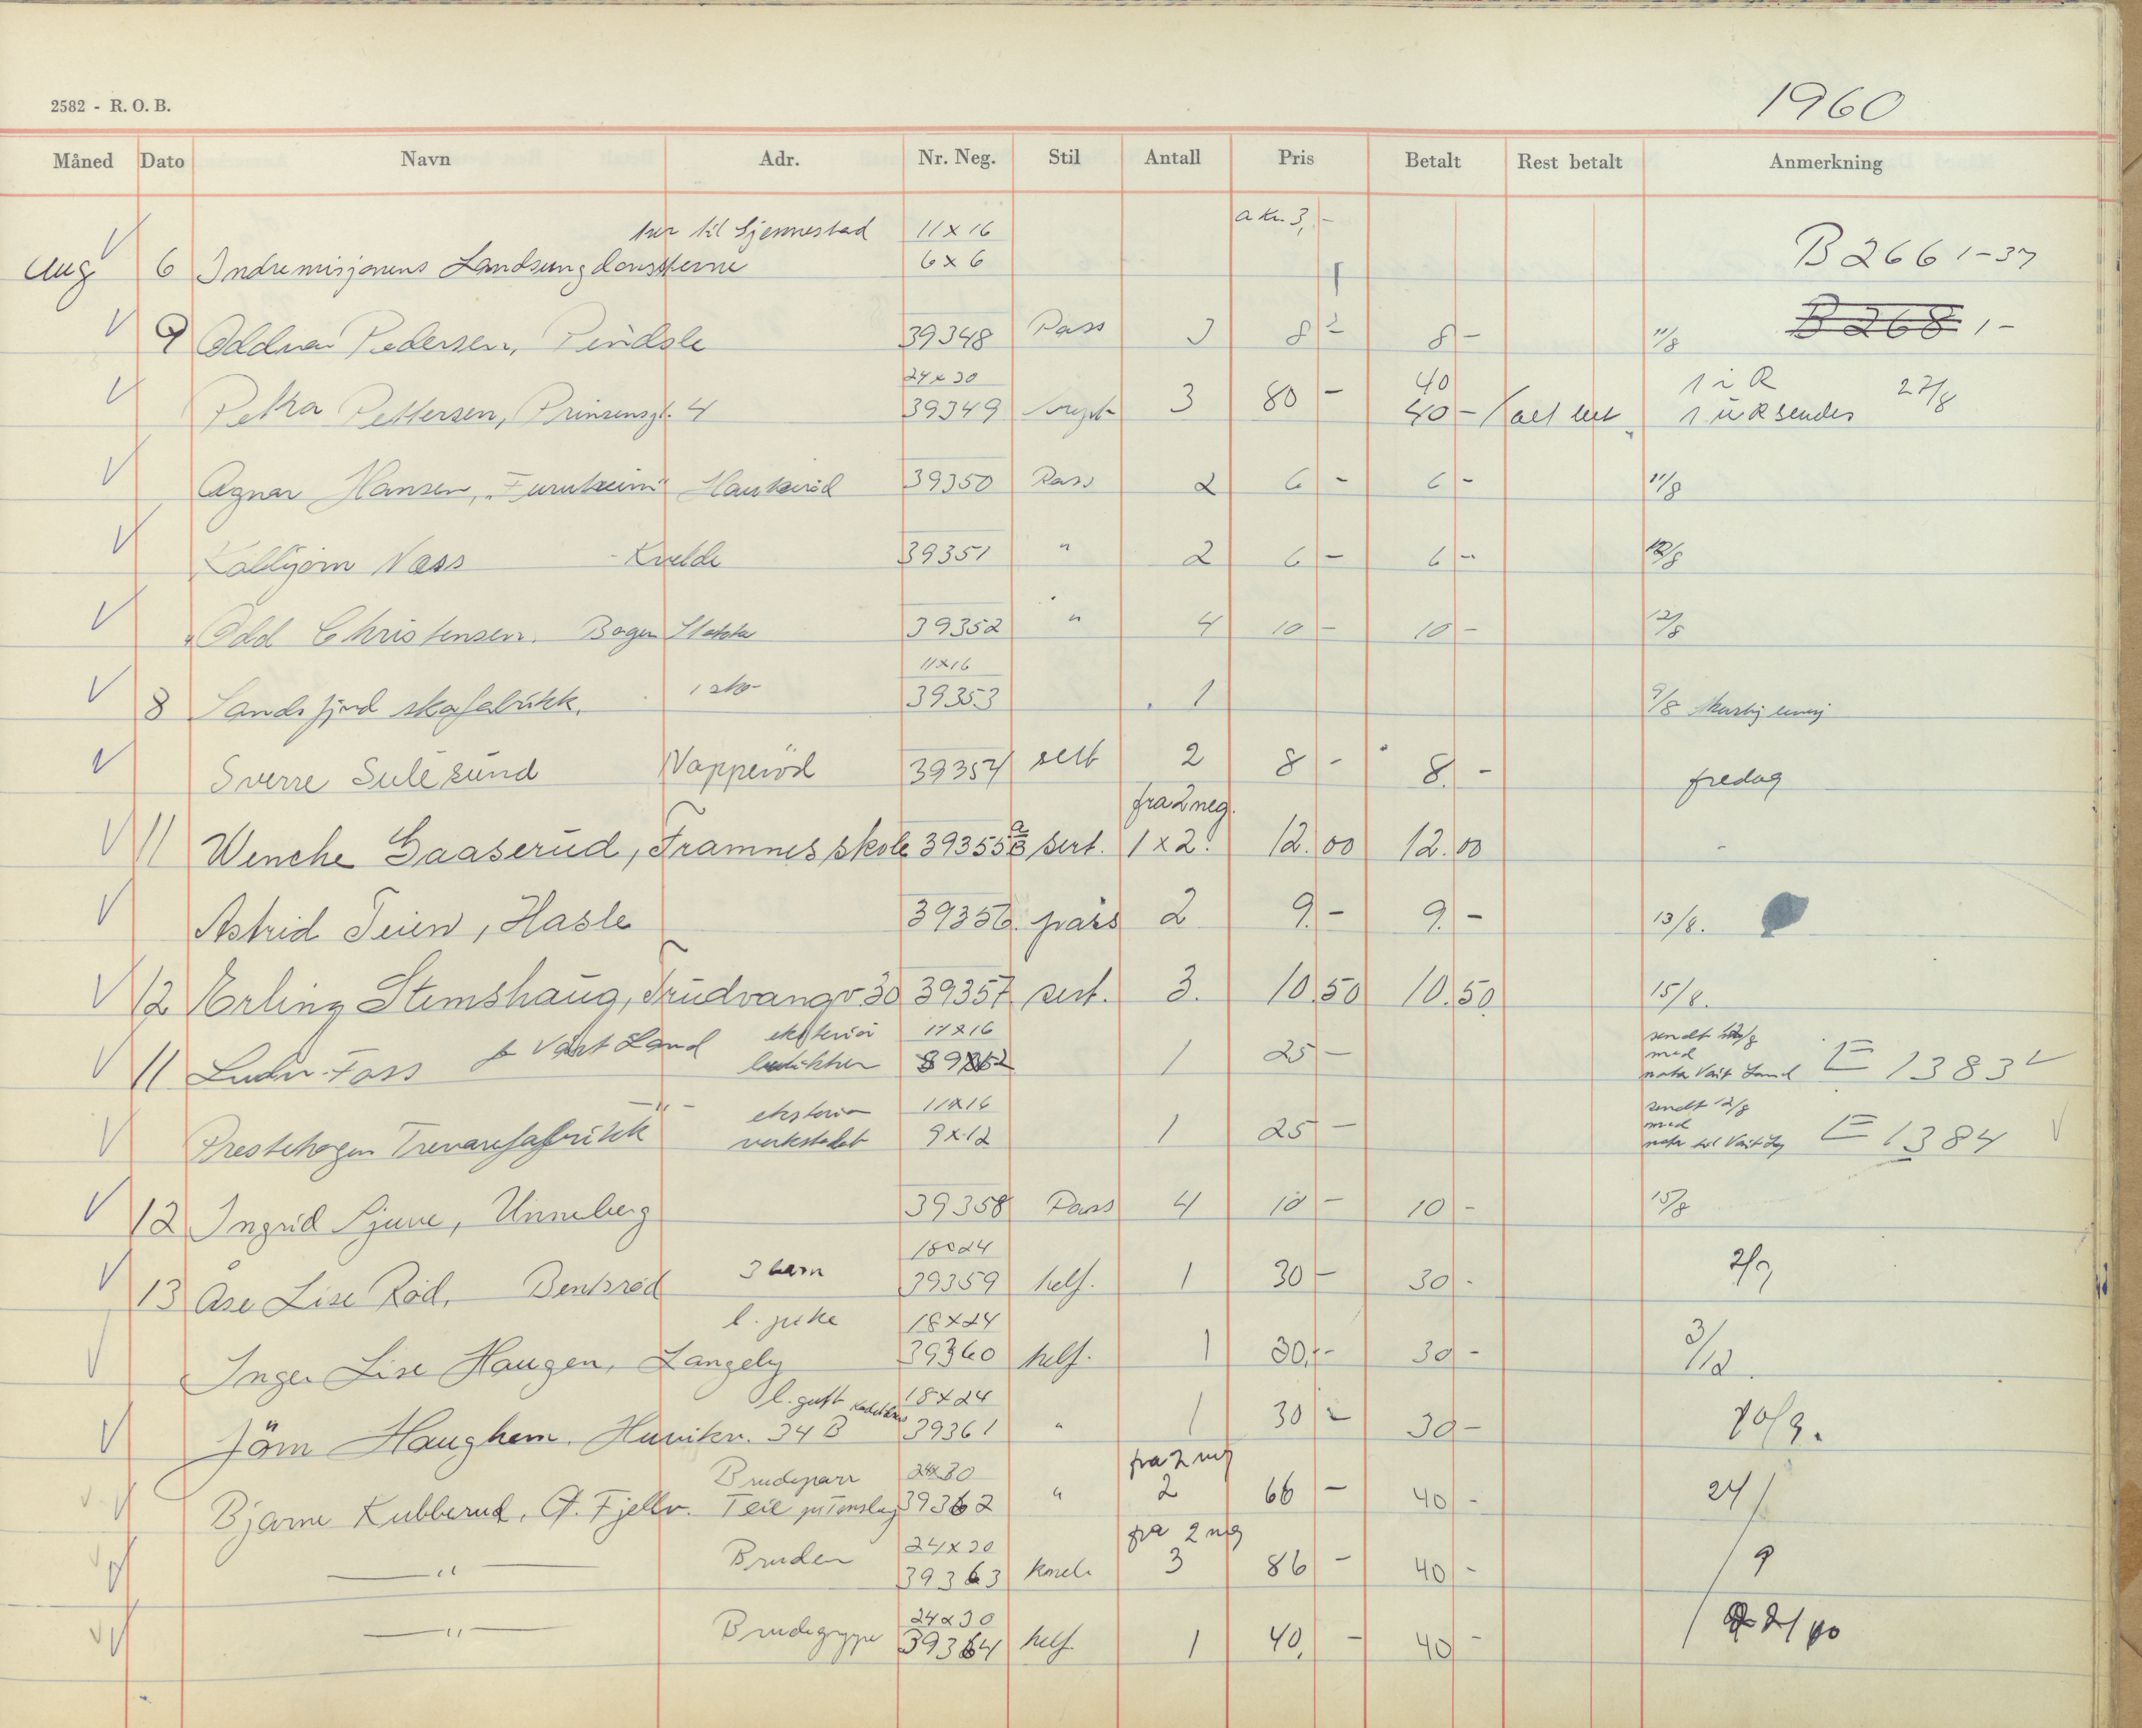 1960
2582 - R. O. B.
Måned Dato Navn Adr. Nr. Neg. Stil Antall Pris Betalt Rest betalt Anmerkning
tur til Gjennestad 11x16 a kr. 3,-
Aug 6 Indremisjonens Landsungdomsstevne 6x6 B 266 1-37
9 Oddvar Pedersen, Pindsle 39348 Pass 3 8 - 8 - 11/8 B 268 1-
24x30 40 1 i R 27/8
Petra Pettersen, Prinsensgt. 4 39349 3 80 - 40 - 1 u R sendes
Agnar Hansen, "Furuheim" Haukerød 39350 Pass 2 6 - 6 - 11/8
Kolbjørn Næss - Kvelde 39351 " 2 6 - 6 - 12/8
Odd Christensen. Bogen Stokke 39352 " 4 10 - 10 - 12/8
11x16
8 Sandefjord skofabrikk. 1 sko 39353 1 9/8
Sverre Sulesund Napperöd 39354 sert 2 8 - 8. - fredag
fra 2 neg.
11 Wenche Gaaserud, Framnes skole 39355 a B sert. 1x2. 12.00 12.00
Astrid Teien, Hasle 39356 pass 2 9.- 9.- 13/8.
12 Erling Stemshaug, Trudvangv. 30 39357 sert. 3. 10.50 10.50 15/8.
f. Vårt Land eksteriør 11x16 sendt
11 Ludv. Foss butikken 1 25 - med nota Vårt Land E 1383
-"- eksteriør 11x16 sendt 12/8
Prestehagen Trevarefabrikk verkstedet 9x12 1 25 - med nota til Vårt E 1384
12 Ingrid Sjuve, Unneberg 39358 Pass 4 10 - 10 - 15/8
3 barn 18x24
13 Åse Lise Röd, Bentsrød 39359 helf. 1 30 - 30 - 2/9
l. pike 18x24
Inger Lise Haugen, Langeby 39360 helf. 1 30,- 30 - 3/12
l. gutt 18x24
Jörn Haughem. Huvikv. 34 B 39361 " 1 30 - 30 - 10/9.
Brudepar 24x30 fra 2 neg
Bjarne Kubberud, Fjellv. Teie pr Tønsberg 39362 " 2 66 - 40 - 24/
24x30 fra 2 neg
-"- Bruden 39363 knel. 3 86 - 40 - /9
24x30
-"- Brudegruppe 39364 helf. 1 40, - 40 - 2/10